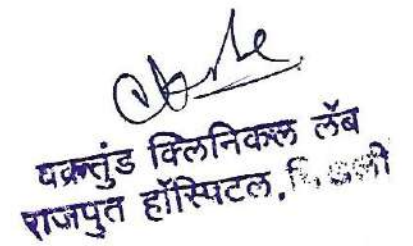 वक्रतुंड क्लिनिकल लॅब
राजपुत हॉस्पिटल,